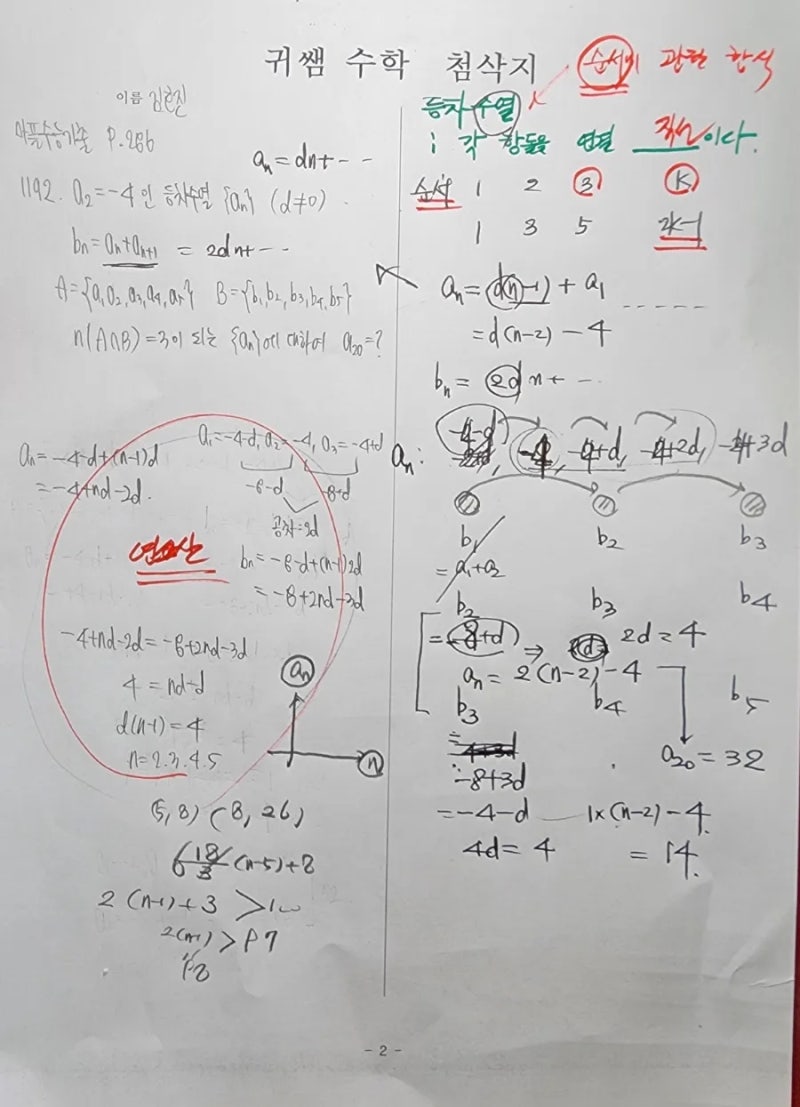 귀쌤 수학 첨삭지
이름 김현진
마플수능기출 P.286
a_n = dn + - -
1192. a_2 = -4 인 등차수열 {a_n} (d≠0).
b_n = a_n + a_{n+1} = 2dn + - -
A = {a_1, a_2, a_3, a_4, a_5} B = {b_1, b_2, b_3, b_4, b_5}
n(A∩B) = 3이 되는 {a_n}에 대하여 a_20 = ?
a_1 = -4-d, a_2 = -4, a_3 = -4+d
a_n = -4-d+(n-1)d
= -4+nd-2d.
-8-d -8+d
공차=2d
b_n = -8-d+(n-1)2d
= -8+2nd-3d
-4+nd-2d = -8+2nd-3d
4 = nd-d
d(n-1) = 4
n = 2.3.4.5
a_n
n
(5, 8) (8, 26)
(n-5)+8
2(n-1)+3 > 100
2(n-1) > 97
98
순서에 관한 함수
등차수열
: 각 항들을 연결 직선이다.
순서 1 2 3 k
1 3 5 2k-1
a_n = d(n-1) + a_1
= d(n-2) - 4
b_n = 2d n + - -
a_n : -4-d, -4, -4+d, -4+2d, -4+3d
b_1 b_2 b_3
= a_1+a_2
b_2 b_3 b_4
= -8+d ⇒ 2d = 4
a_n = 2(n-2)-4
b_3 b_4 b_5
a_20 = 32
-8+3d
= -4-d 1×(n-2)-4.
4d = 4 = 14.
- 2 -